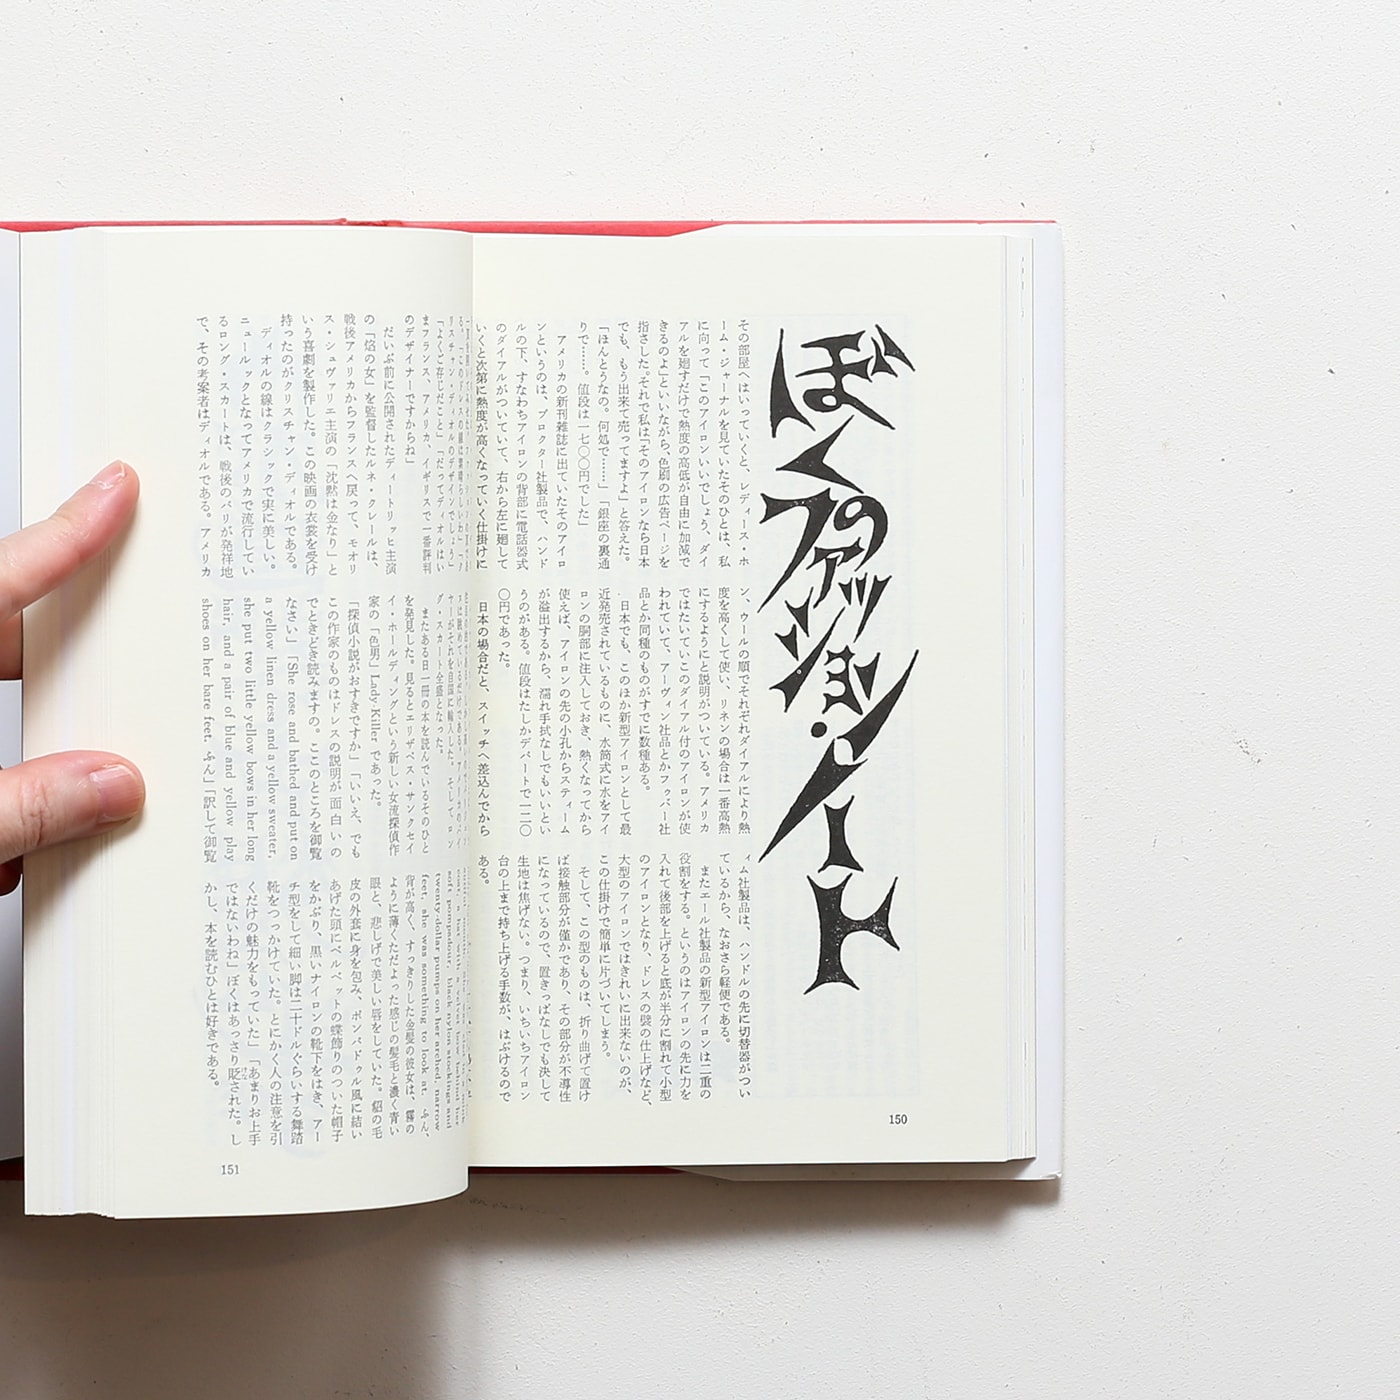 ぼくのファッション・ノート
その部屋へはいっていくと、レディース・ホ
ーム・ジャーナルを見ていたそのひとは、私
に向って「このアイロンいいでしょう、ダイ
アルを廻すだけで熱度の高低が自由に加減で
きるのよ」といいながら、色刷の広告ページを
指さした。それで私は「そのアイロンなら日本
でも、もう出来て売ってますよ」と答えた。
「ほんとうなの。何処で……」「銀座の裏通
りで……。値段は一七〇〇円でした」
アメリカの新刊雑誌に出ていたそのアイロ
ンというのは、プロクター社製品で、ハンド
ルの下、すなわちアイロンの背部に電話器式
のダイアルがついていて、右から左に廻して
いくと次第に熱度が高くなっていく仕掛けに
ン、ウールの順でそれぞれダイアルにより熱
度を高くして使い、リネンの場合は一番高熱
にするようにと説明がついている。アメリカ
ではたいていこのダイアル付のアイロンが使
われていて、アーヴィン社品とかフゥバー社
品とか同種のものがすでに数種ある。
日本でも、このほか新型アイロンとして最
近発売されているものに、水筒式に水をアイ
ロンの胴部に注入しておき、熱くなってから
使えば、アイロンの先の小孔からスティーム
が溢出するから、濡れ手拭なしでもいいとい
うのがある。値段はたしかデパートで一二〇
〇円であった。
日本の場合だと、スイッチへ差込んでから
ィム社製品は、ハンドルの先に切替器がつい
ているから、なおさら軽便である。
またエール社製品の新型アイロンは二重の
役割をする。というのはアイロンの先に力を
入れて後部を上げると底が半分に割れて小型
のアイロンとなり、ドレスの襞の仕上げなど、
大型のアイロンではきれいに出来ないのが、
この仕掛けで簡単に片づいてしまう。
そして、この型のものは、折り曲げて置け
ば接触部分が僅かであり、その部分が不導性
になっているので、置きっぱなしでも決して
生地は焦げない。つまり、いちいちアイロン
台の上まで持ち上げる手数が、はぶけるので
ある。
150
リスチャン・ディオルのデザインでしょう」
「よくご存じだこと」「だってディオルはい
まフランス、アメリカ、イギリスで一番評判
のデザイナーですからね」
だいぶ前に公開されたディートリッヒ主演
の「焔の女」を監督したルネ・クレールは、
戦後アメリカからフランスへ戻って、モオリ
ス・シュヴァリエ主演の「沈黙は金なり」と
いう喜劇を製作した。この映画の衣裳を受け
持ったのがクリスチャン・ディオルである。
ディオルの線はクラシックで実に美しい。
ニュールックとなってアメリカで流行してい
るロング・スカートは、戦後のパリが発祥地
で、その考案者はディオルである。アメリカ
グ・スカート全盛となった。
またある日一冊の本を読んでいるそのひと
を発見した。見るとエリザベス・サンクセイ
イ・ホールディングという新しい女流探偵作
家の「色男」Lady Killer であった。
「探偵小説がおすきですか」「いいえ、でも
この作家のものはドレスの説明が面白いの
でときどき読みますの。ここのところを御覧
なさい」「She rose and bathed and put on
a yellow linen dress and a yellow sweater,
she put two little yellow bows in her long
hair, and a pair of blue and yellow play
shoes on her bare feet. ふん」「訳して御覧
soft pompadour, black nylon stockings and
twenty-dollar pumps on her arched, narrow
feet, she was something to look at. ふん、
背が高く、すっきりした金髪の彼女は、霧の
ように薄くただよった感じの髪毛と濃く青い
眼と、悲しげで美しい唇をしていた。貂の毛
皮の外套に身を包み、ポンパドゥル風に結い
あげた頭にベルベットの蝶飾りのついた帽子
をかぶり、黒いナイロンの靴下をはき、アー
チ型をして細い脚は二十ドルぐらいする舞踏
靴をつっかけていた。とにかく人の注意を引
くだけの魅力をもっていた」「あまりお上手
ではないわね」ぼくはあっさり貶された。し
かし、本を読むひとは好きである。
151